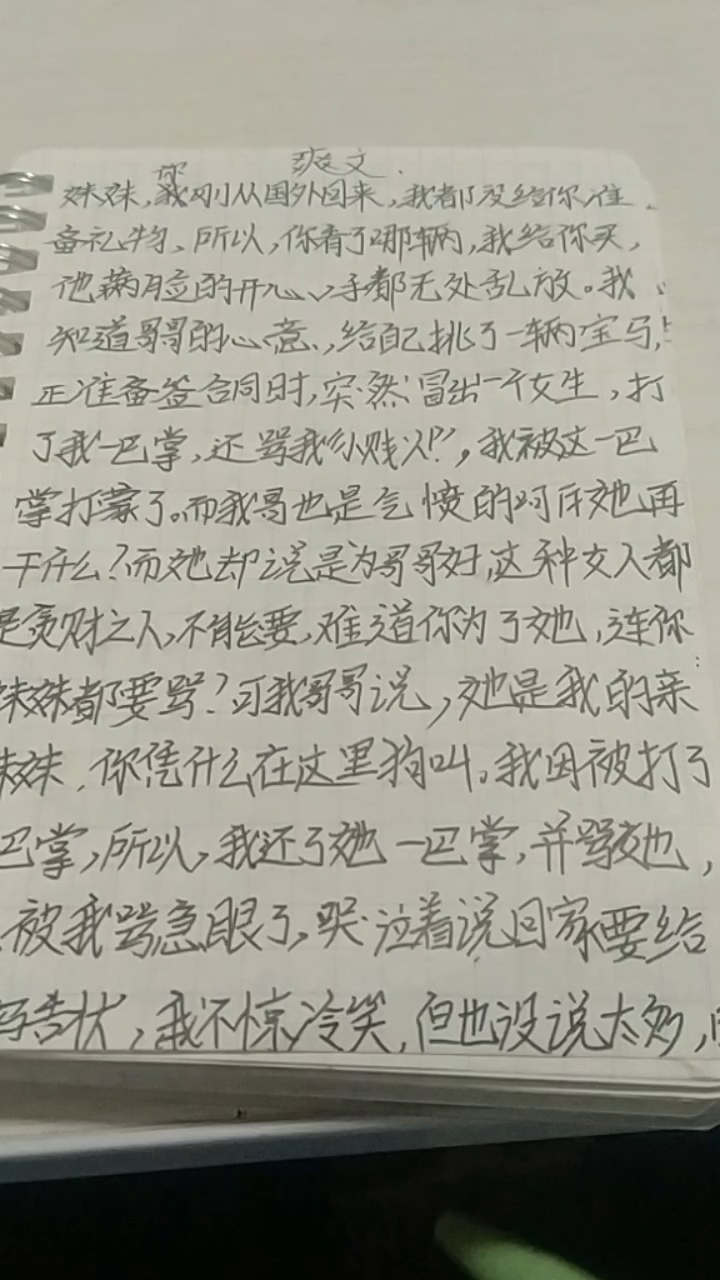 爽文.
你
妹妹,我刚从国外回来,我都没给你准
备礼物、所以,你看了哪辆,我给你买,
他满脸的开心、手都无处乱放。我
知道哥哥的心意.,给自己挑了一辆宝马,
正准备签合同时,突然冒出一个女生,打
了我一巴掌,还骂我“小贱人”,我被这一巴
掌打蒙了。而我哥也是气愤的呵斥她再
干什么?而她却说是为哥哥好,这种女人都
是贪财之人,不能要,难道你为了她,连你
妹妹都要骂?可我哥哥说,她是我的亲
妹妹.你凭什么在这里狗叫。我因被打了
巴掌,所以,我还了她一巴掌,并骂她,
被我骂急眼了,哭泣着说回家要给
妈告状,我不惊冷笑,但也没说太多,